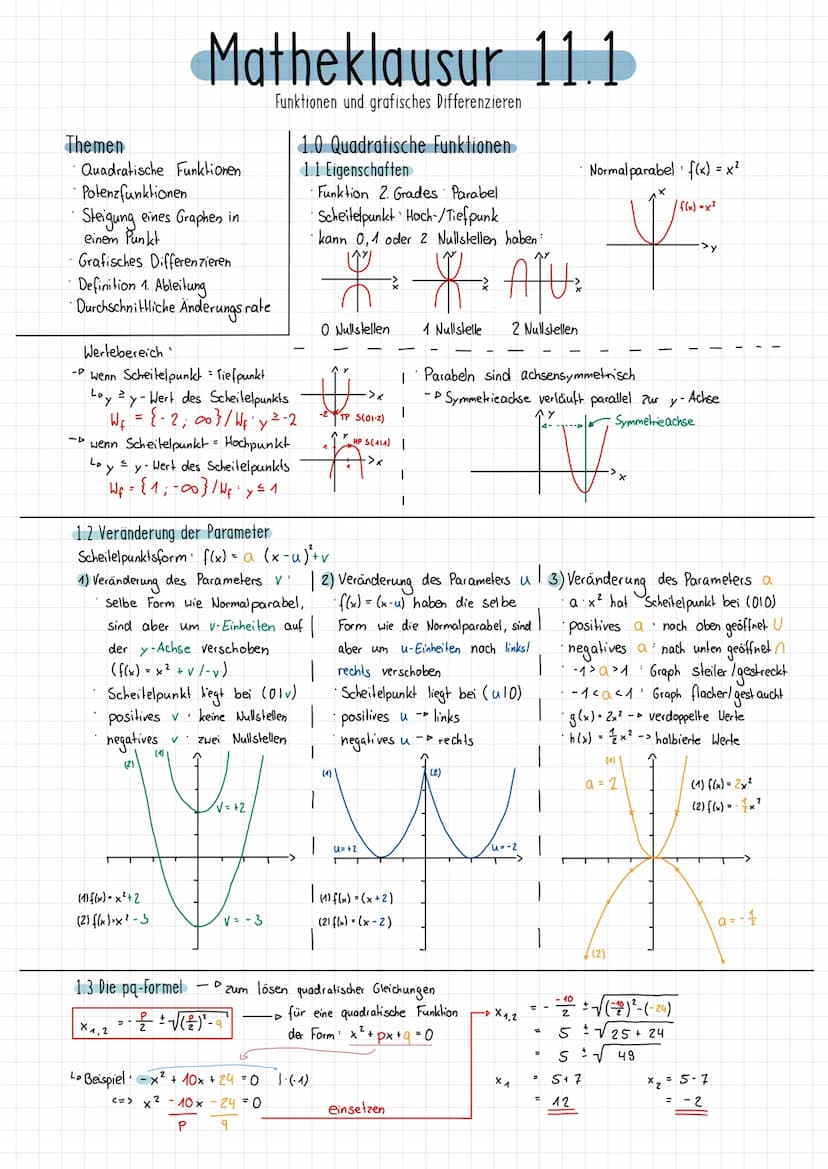 Matheklausur 11.1
Funktionen und grafisches Differenzieren
Themen
· Quadratische Funktionen
· Potenzfunktionen
· Steigung eines Graphen in
einem Punkt
· Grafisches Differenzieren
· Definition 1. Ableitung
· Durchschnittliche Änderungsrate
1.0 Quadratische Funktionen
1.1 Eigenschaften
· Funktion 2. Grades : Parabel
· Scheitelpunkt : Hoch-/Tiefpunk
· kann 0, 1 oder 2 Nullstellen haben:
0 Nullstellen
1 Nullstelle
2 Nullstellen
· Normalparabel : f(x) = x²
x
f(x) = x²
y
Wertebereich :
→ wenn Scheitelpunkt = Tiefpunkt
↳ y ≥ y-Wert des Scheitelpunkts
Wf = {-2; ∞}/Wf: y ≥ -2
→ wenn Scheitelpunkt = Hochpunkt
↳ y ≤ y-Wert des Scheitelpunkts
Wf = {1; -∞}/Wf: y ≤ 1
y
x
-2
TP S(0|-2)
y
1
HP S(1|1)
x
1
· Parabeln sind achsensymmetrisch
→ Symmetrieachse verläuft parallel zur y-Achse
y
Symmetrieachse
x
1.2 Veränderung der Parameter
Scheitelpunktsform : f(x) = a (x-u)²+v
1) Veränderung des Parameters v :
· selbe Form wie Normalparabel,
sind aber um v-Einheiten auf
der y-Achse verschoben
(f(x) = x² +v/-v)
· Scheitelpunkt liegt bei (0|v)
· positives v : keine Nullstellen
· negatives v : zwei Nullstellen
(2)
(1)
v = +2
(1) f(x) = x²+2
(2) f(x) = x²-3
v = -3
2) Veränderung des Parameters u
· f(x) = (x-u) haben die selbe
Form wie die Normalparabel, sind
aber um u-Einheiten nach links/
rechts verschoben
· Scheitelpunkt liegt bei (u|0)
· positives u → links
· negatives u → rechts
(1)
(2)
u = +2
u = -2
(1) f(x) = (x+2)
(2) f(x) = (x-2)
3) Veränderung des Parameters a
· a·x² hat Scheitelpunkt bei (0|0)
· positives a : nach oben geöffnet U
· negatives a : nach unten geöffnet ∩
· -1>a>1 : Graph steiler/gestreckt
· -1<a<1 : Graph flacher/gestaucht
· g(x) = 2x² → verdoppelte Werte
· h(x) = ½x² → halbierte Werte
(1)
a = 2
(1) f(x) = 2x²
(2) f(x) = -½x²
a = -½
(2)
1.3 Die pq-Formel → zum lösen quadratischer Gleichungen
x₁,₂ = -p/2 ± √((p/2)²-q)
→ für eine quadratische Funktion
der Form : x² + px + q = 0
↳ Beispiel : -x² + 10x + 24 = 0 |·(-1)
<=> x² -10x -24 = 0
p
q
einsetzen
→ x₁,₂ = - -10/2 ± √((-10/2)²-(-24))
= 5 ± √25 + 24
= 5 ± √49
x₁ = 5+7
= 12
x₂ = 5-7
= -2